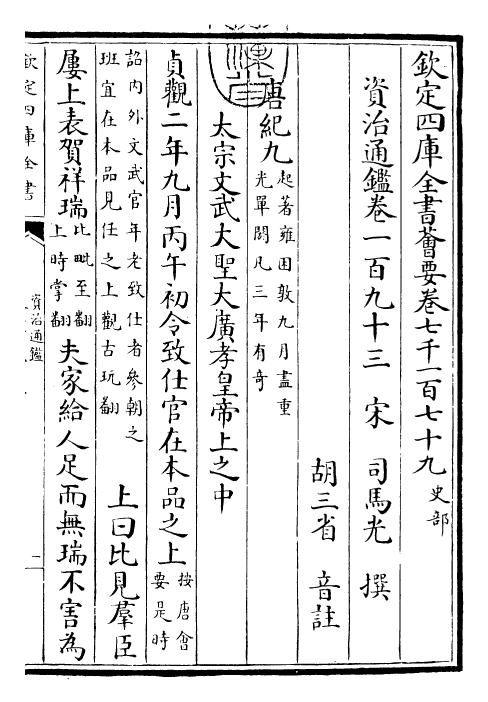 欽定四庫全書薈要卷七千一百七十九 史部
資治通鑑卷一百九十三 宋 司馬光 撰
胡三省 音註
唐紀九 起著雍困敦九月盡重
光單閼凡三年有奇
太宗文武大聖大廣孝皇帝上之中
貞觀二年九月丙午初令致仕官在本品之上 按唐會
要是時
詔内外文武官年老致仕者參朝之
班宜在本品見任之上觀古玩翻
上曰比見羣臣
屢上表賀祥瑞 比毗至翻
上時掌翻
夫家給人足而無瑞不害為
欽定四庫全書
資治通鑑
一